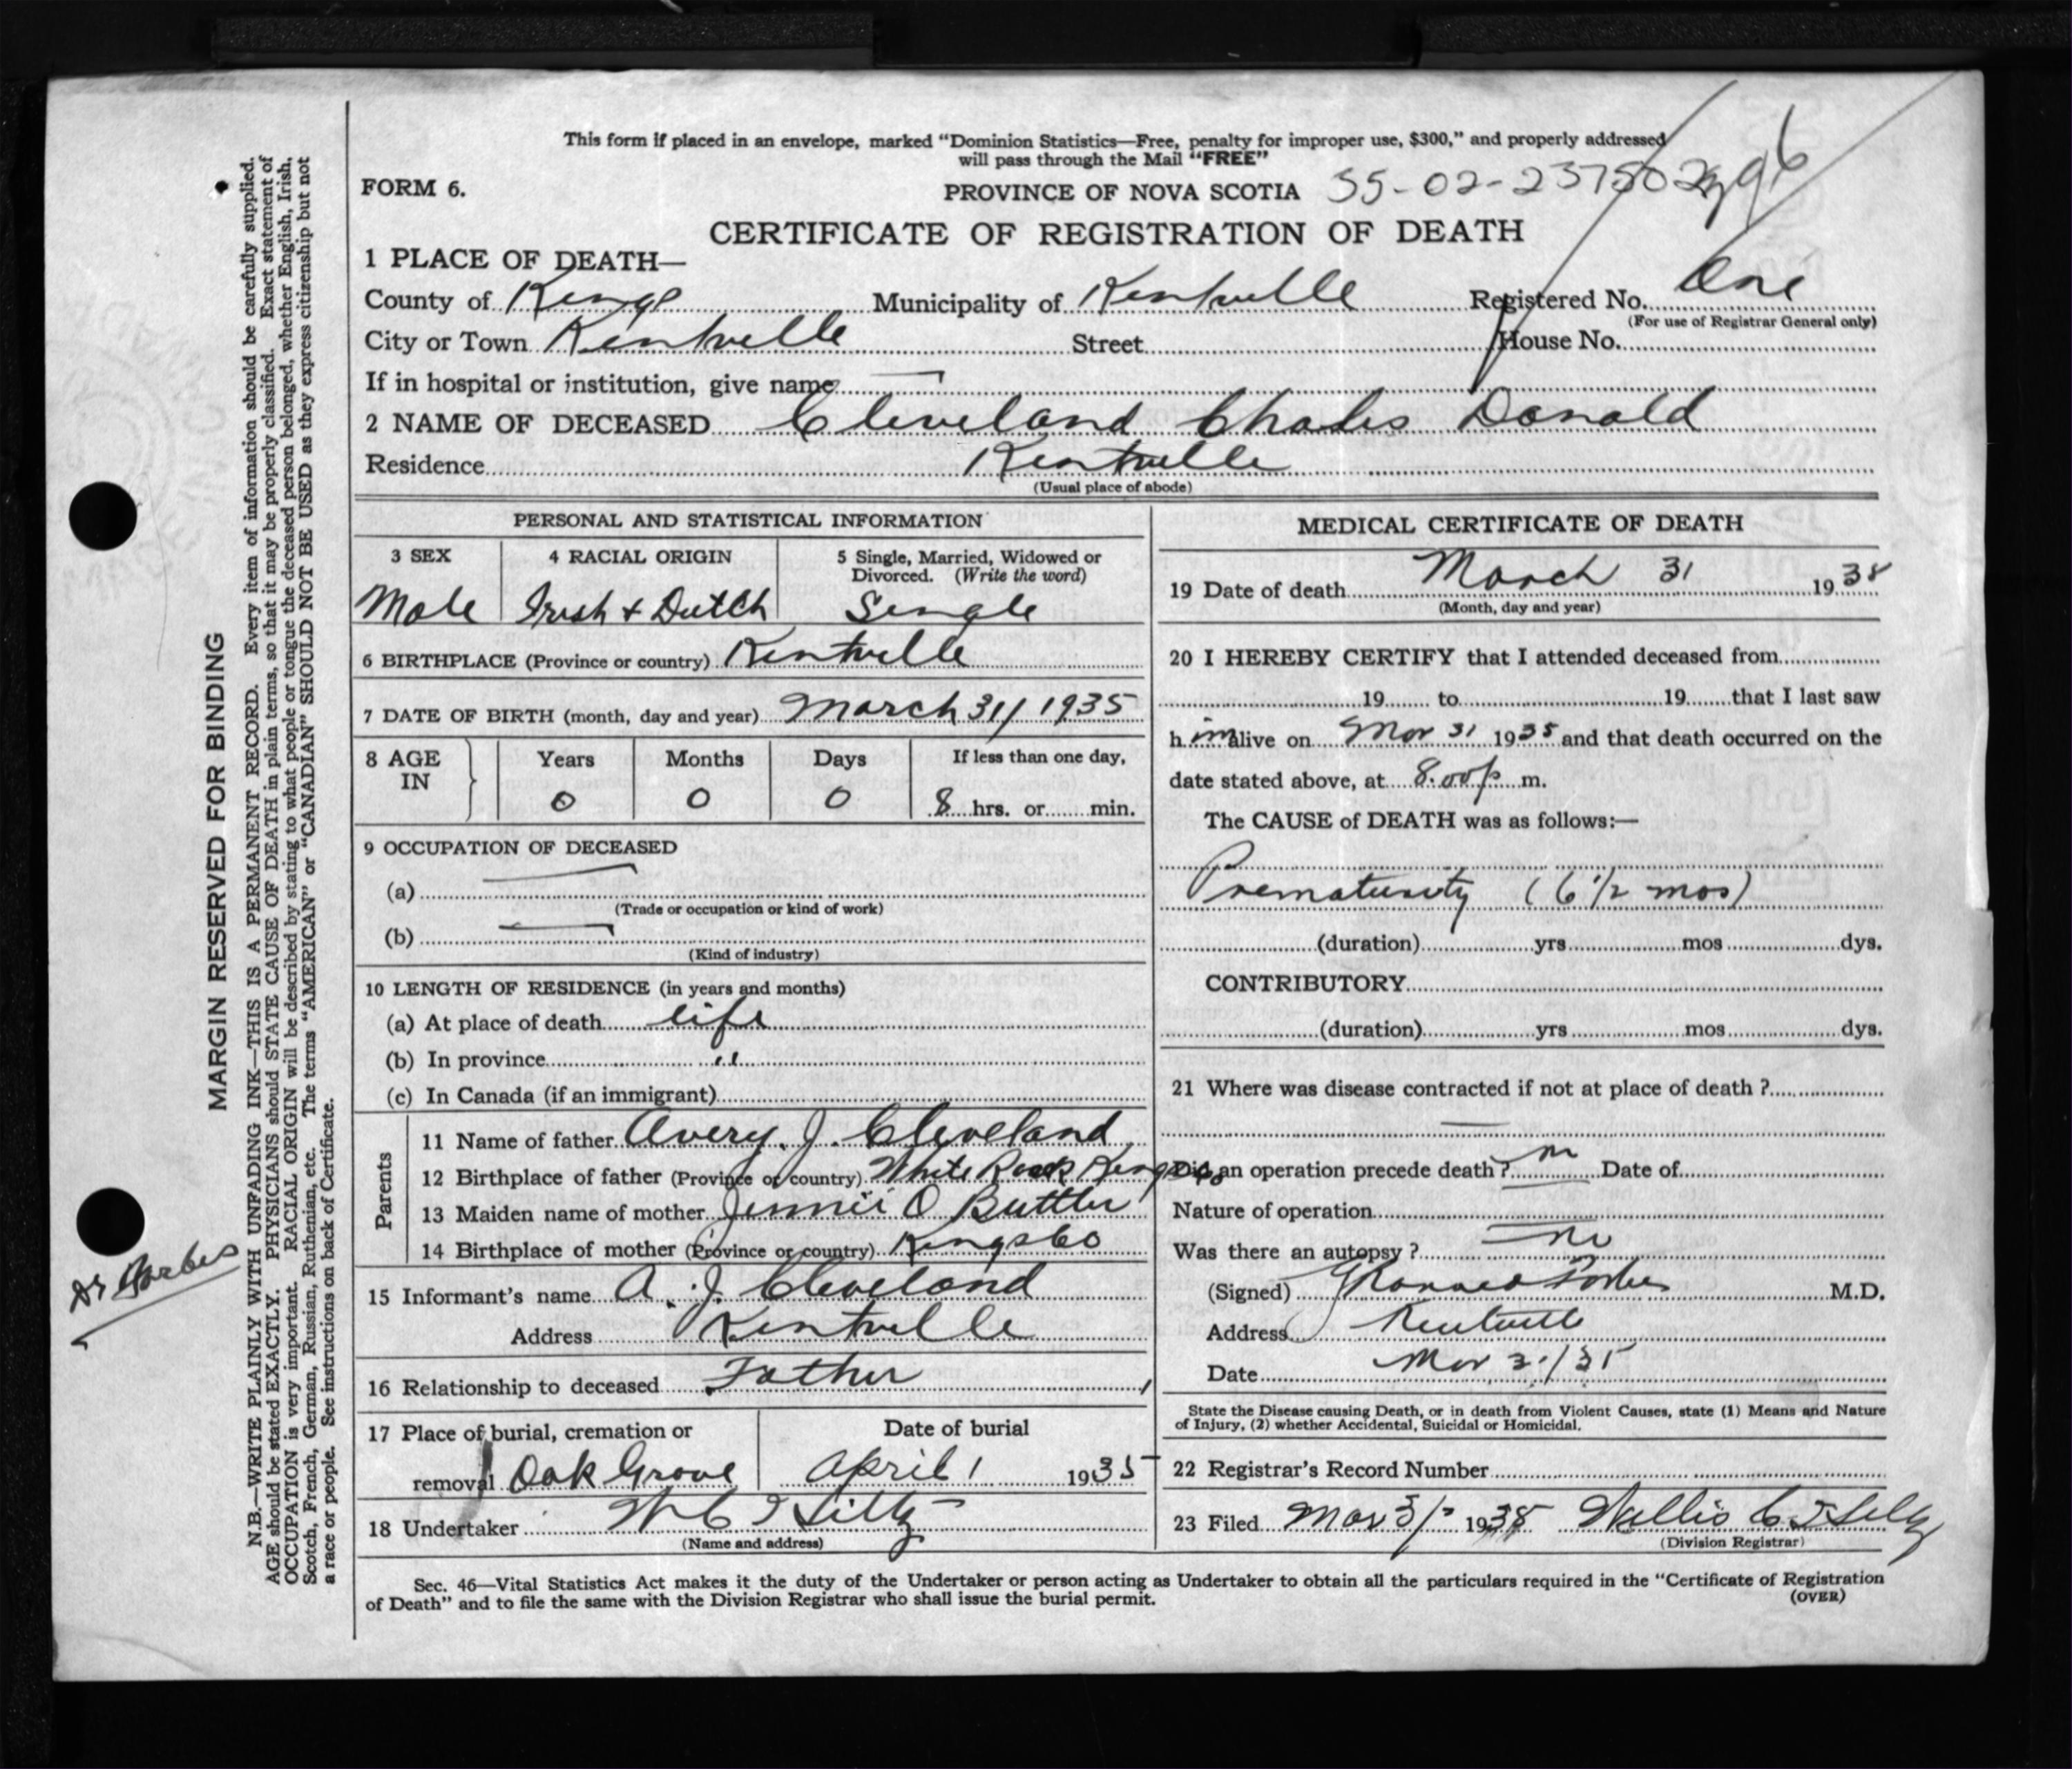 This form if placed in an envelope, marked "Dominion Statistics—Free, penalty for improper use, $300," and properly addressed
will pass through the Mail "FREE"
FORM 6.
PROVINCE OF NOVA SCOTIA 35-02-237502
CERTIFICATE OF REGISTRATION OF DEATH
1 PLACE OF DEATH—
County of Kings Municipality of Kentville Registered No. One
(For use of Registrar General only)
City or Town Kentville Street House No.
If in hospital or institution, give name
2 NAME OF DECEASED Cleveland Charles Donald
Residence Kentville
(Usual place of abode)
PERSONAL AND STATISTICAL INFORMATION
3 SEX 4 RACIAL ORIGIN 5 Single, Married, Widowed or
Divorced. (Write the word)
Male Irish + Dutch Single
6 BIRTHPLACE (Province or country) Kentville
7 DATE OF BIRTH (month, day and year) March 31/1935
8 AGE IN Years Months Days If less than one day,
0 0 0 8 hrs. or min.
9 OCCUPATION OF DECEASED
(a)
(Trade or occupation or kind of work)
(b)
(Kind of industry)
10 LENGTH OF RESIDENCE (in years and months)
(a) At place of death life
(b) In province "
(c) In Canada (if an immigrant)
Parents
11 Name of father Avery J. Cleveland
12 Birthplace of father (Province or country) White Rock Kings Co
13 Maiden name of mother Jennie O Buttler
14 Birthplace of mother (Province or country) Kings Co
15 Informant's name A. J. Cleveland
Address Kentville
16 Relationship to deceased Father
17 Place of burial, cremation or Date of burial
removal Oak Grove April 1 1935
18 Undertaker W C T Siltz
(Name and address)
MEDICAL CERTIFICATE OF DEATH
19 Date of death March 31 1935
(Month, day and year)
20 I HEREBY CERTIFY that I attended deceased from
19 to 19 that I last saw
him alive on Mar 31 1935 and that death occurred on the
date stated above, at 8.00 p m.
The CAUSE of DEATH was as follows:—
Prematurity (6 1/2 mos)
(duration) yrs mos dys.
CONTRIBUTORY
(duration) yrs mos dys.
21 Where was disease contracted if not at place of death ?
Did an operation precede death ? no Date of
Nature of operation
Was there an autopsy ? no
(Signed) Forbes M.D.
Address Kentville
Date Mar 31/35
State the Disease causing Death, or in death from Violent Causes, state (1) Means and Nature
of Injury, (2) whether Accidental, Suicidal or Homicidal.
22 Registrar's Record Number
23 Filed Mar 31 1935 Willis C T
(Division Registrar)
Sec. 46—Vital Statistics Act makes it the duty of the Undertaker or person acting as Undertaker to obtain all the particulars required in the "Certificate of Registration
of Death" and to file the same with the Division Registrar who shall issue the burial permit.
(OVER)
MARGIN RESERVED FOR BINDING
N.B.—WRITE PLAINLY WITH UNFADING INK—THIS IS A PERMANENT RECORD. Every item of information should be carefully supplied.
AGE should be stated EXACTLY. PHYSICIANS should STATE CAUSE OF DEATH in plain terms, so that it may be properly classified. Exact statement of
OCCUPATION is very important. RACIAL ORIGIN will be described by stating to what people or tongue the deceased person belonged, whether English, Irish,
Scotch, French, German, Russian, Ruthenian, etc. The terms "AMERICAN" or "CANADIAN" SHOULD NOT BE USED as they express citizenship but not
a race or people. See instructions on back of Certificate.
Dr Forbes